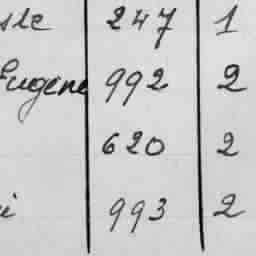 ste 247 1
Eugene 992 2
620 2
i 993 2